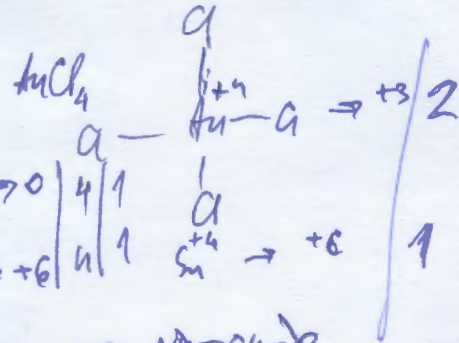 Cl
AuCl₄
Cl — Au⁺⁴ — Cl → +3 | 2
→ 0 | 4 | 1
Cl
+6 | 4 | 1
Sn⁺⁴ → +6 | 1